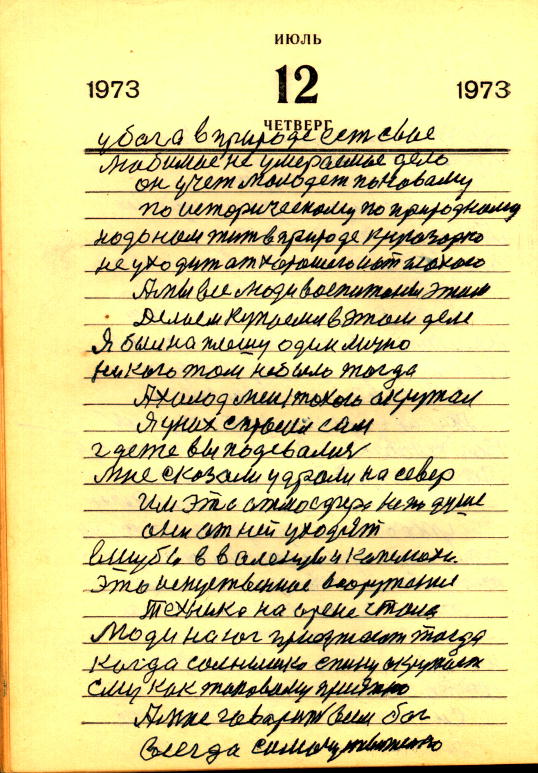 ИЮЛЬ
1973 12 1973
ЧЕТВЕРГ
у бога в природе есть свое
любимое не умераемое дело
он учет молодеж по новаму
по историческому по природному
надо нам жит в природе
не уходит от хорошего и от плохого
А мы все люди воспитаны этим
Делаем купаемся в этом деле
Я был на пляжу один лично
никого там не было тогда
А холод меня такого окружал
Я у них спросил сам
где же вы подевалия
мне сказали удрали на север
Им эта атмосфера не по душе
они от ней уходят
в шубы в валенки и
Это искуственное вооружение
техника на арене стала
Люди на юг приезжают тогда
когда солнышко спину окружает
ему как таковому приятно
А мне говарит вам бог
всегда